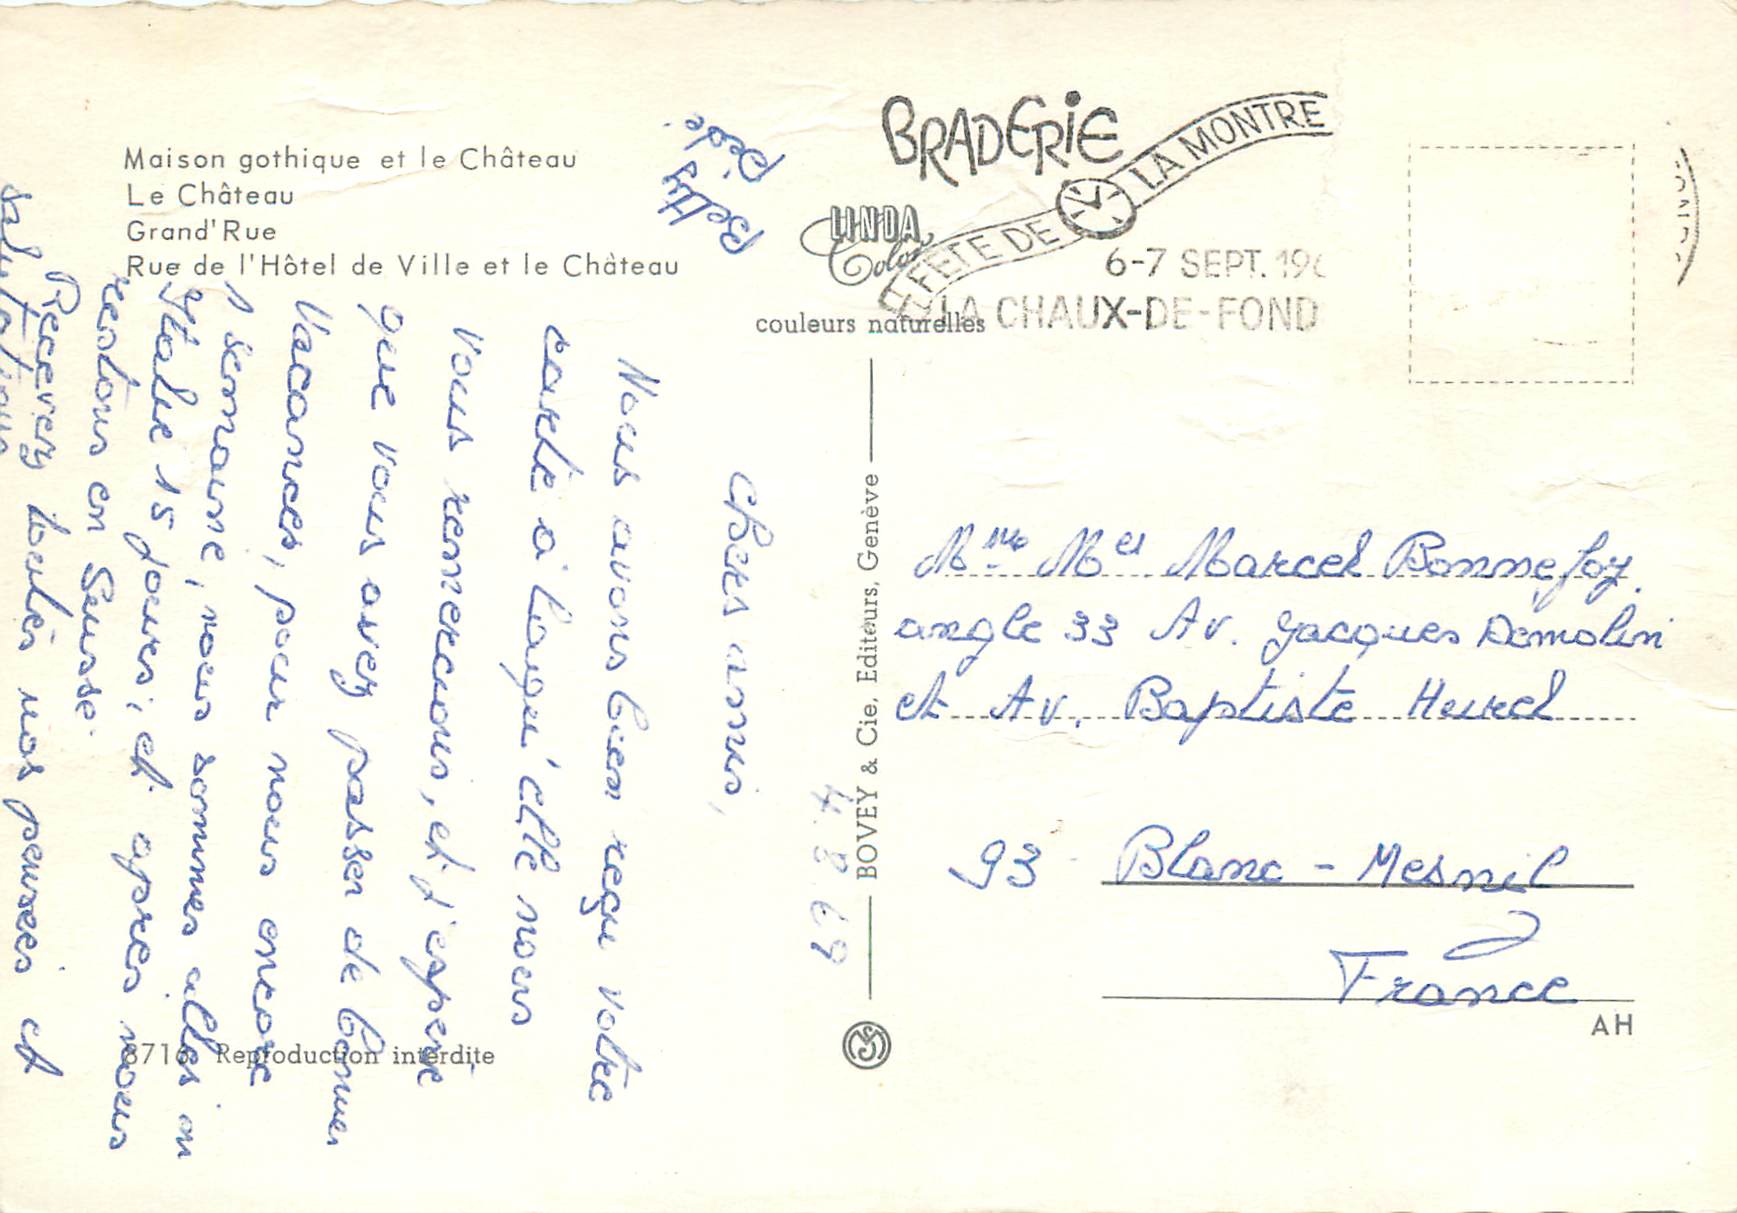 Maison gothique et le Château
Le Château
Grand'Rue
Rue de l'Hôtel de Ville et le Château
BRADERIE
FÊTE DE LA MONTRE
6-7 SEPT. 196
LA CHAUX-DE-FOND
LINDA
Color
couleurs naturelles
4.8.69
Chers amis,
Nous avons bien reçu votre
carte à laqu'elle nous
vous remercions, et j'espère
que vous avez passer de bonnes
Vacances, pour nous encore
1 semaine, nous sommes alles en
Italie 15 jours, et apres nous
restons en Suisse.
Recevez toutes nos pensées et
salutations
Betty
BOVEY & Cie, Editeurs, Genève
Mme Mr Marcel Bonnefoy
angle 33 Av. Jacques Démolin
et Av. Baptiste Hurel
93 Blanc-Mesnil
France
AH
8716 Reproduction interdite